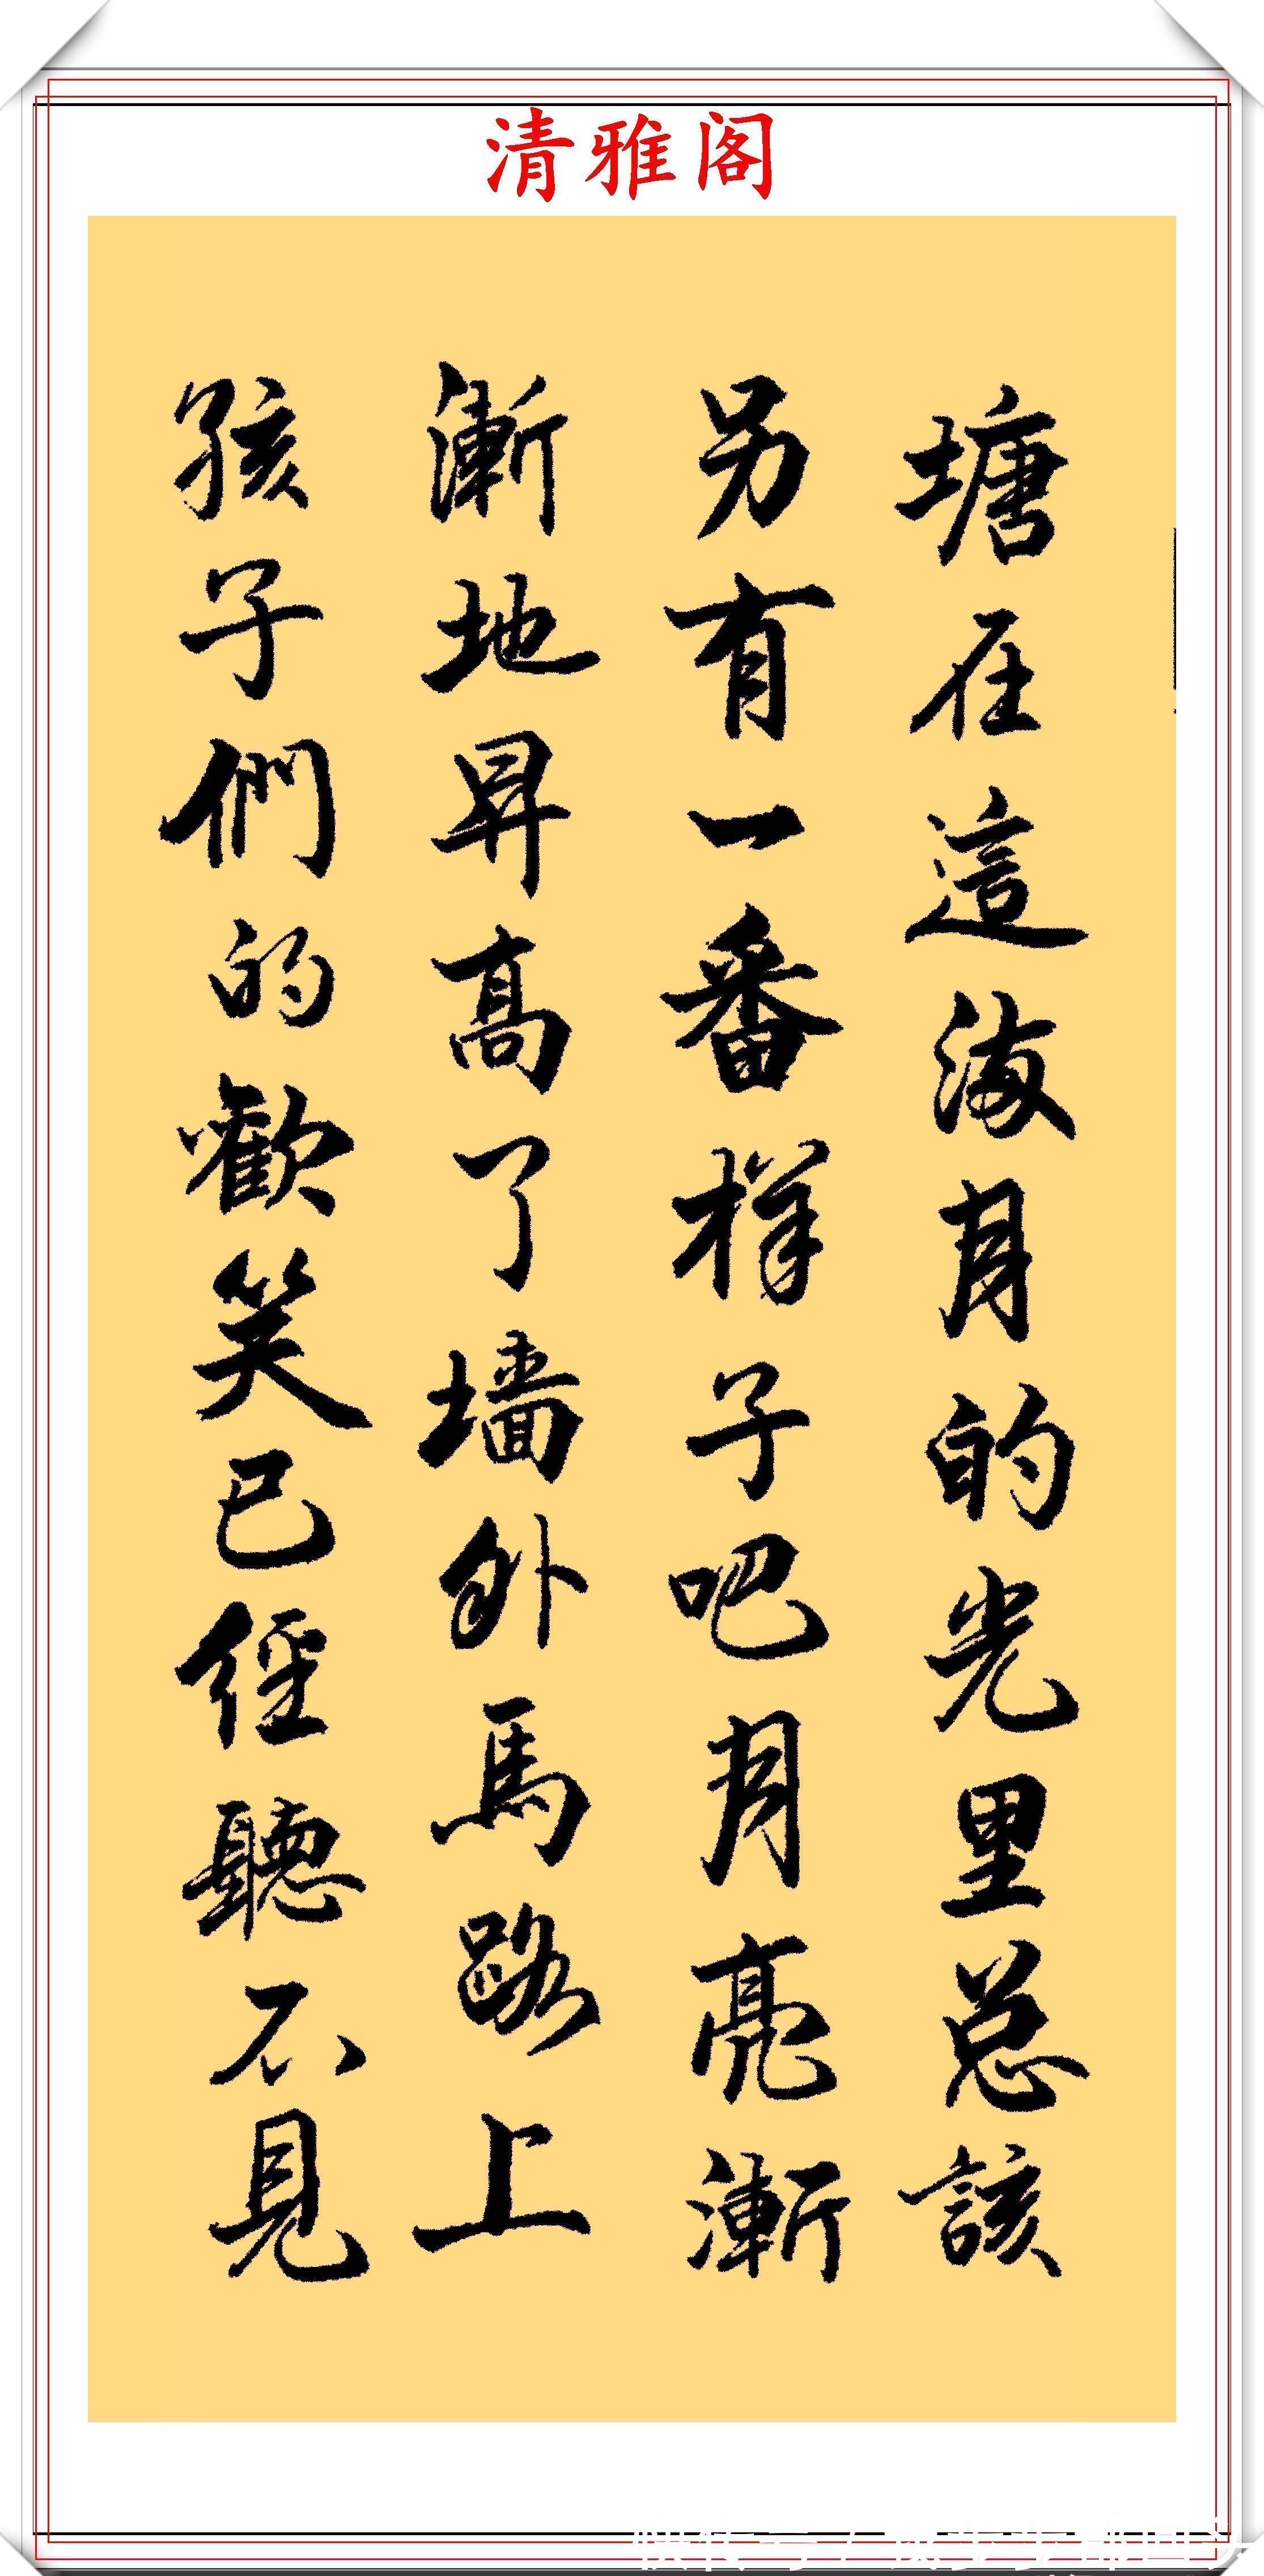 清雅阁
塘在這满月的光里总該
另有一番样子吧月亮漸
漸地昇高了墙外馬路上
孩子們的歡笑已經聽不見